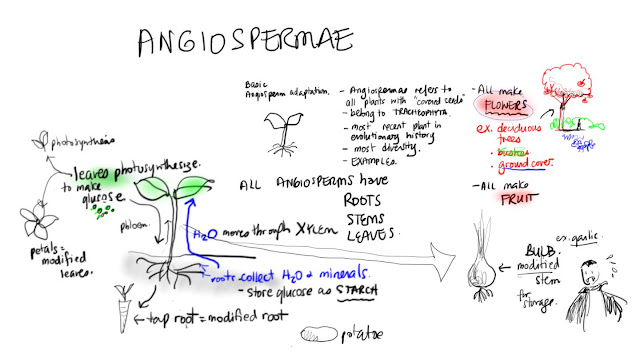 ANGIOSPERMAE
Basic
Angiosperm adaptation.
- Angiospermae refers to
all plants with "covered seeds"
- belong to TRACHEOPHYTA.
- most recent plant in
evolutionary history
- most diversity.
- EXAMPLES.
- All make
FLOWERS
ex. deciduous
trees
bushes
ground cover.
- All make
FRUIT
photosynthesis
leaves photosynthesize.
to make
glucose.
phloem
petals =
modified
leaves.
H2O moves through XYLEM
ALL ANGIOSPERMS have
ROOTS
STEMS
LEAVES.
roots collect H2O & minerals.
- store glucose as STARCH
tap root = modified root
potatoe
ex. garlic
BULB.
modified
stem
for
storage.